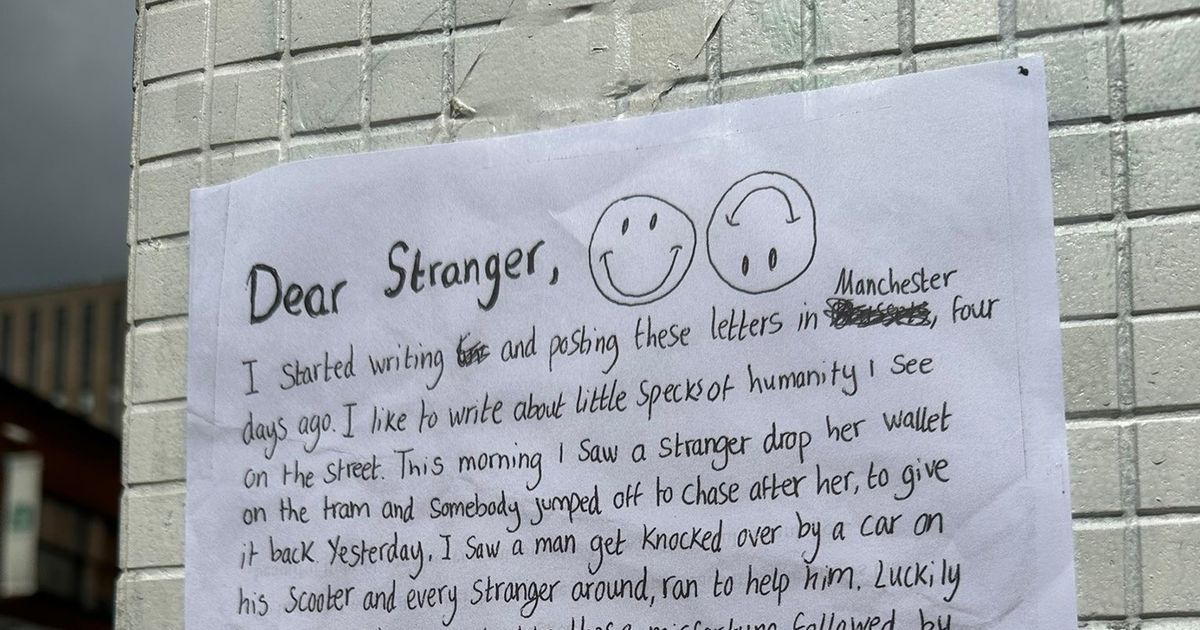 Dear Stranger,
Manchester
I started writing and posting these letters in , four
days ago. I like to write about little specks of humanity I see
on the street. This morning I saw a stranger drop her wallet
on the tram and somebody jumped off to chase after her, to give
it back. Yesterday, I saw a man get knocked over by a car on
his scooter and every stranger around, ran to help him. Luckily
misfortune followed by